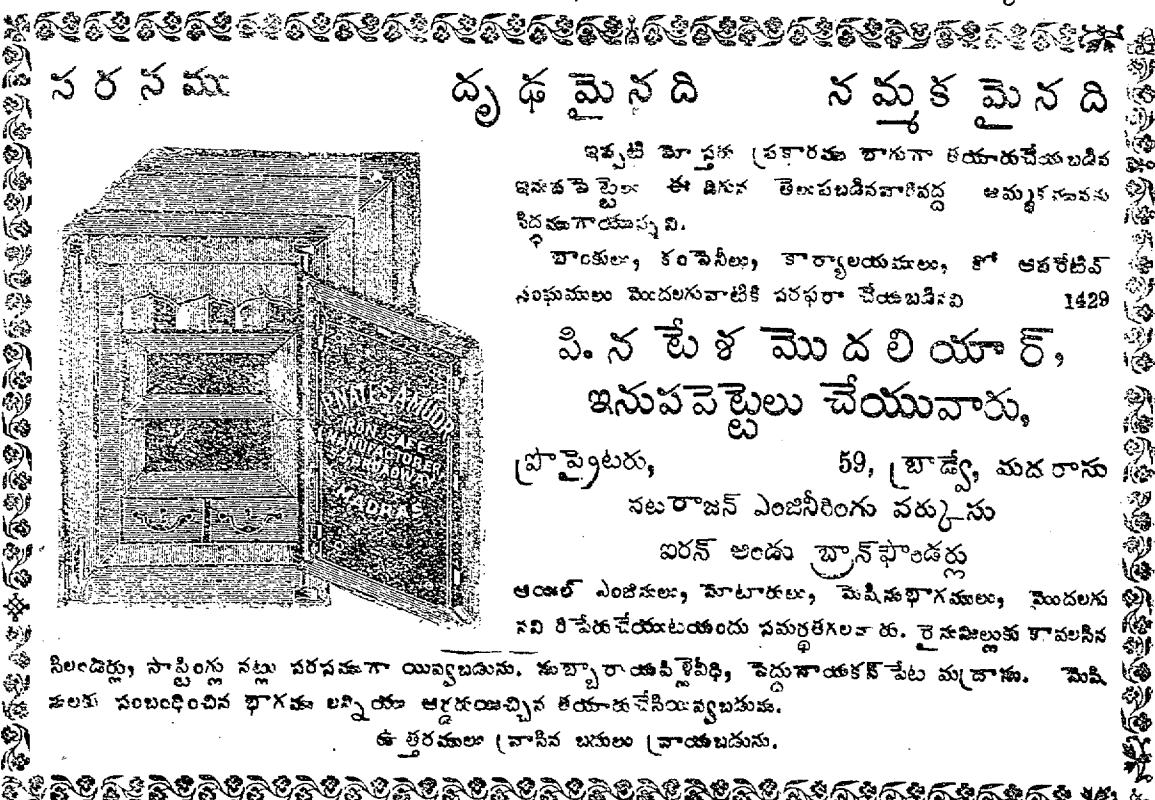 సరసము దృఢమైనది నమ్మకమైనది
ఇప్పటి మోస్తరు ప్రకారము బాగుగా తయారుచేయబడిన
ఇనుపపెట్టెలు ఈ దిగున తెలుపబడినవారివద్ద అమ్మకమునకు
సిద్ధముగాయున్నవి.
బాంకులు, కంపెనీలు, కార్యాలయములు, కో ఆపరేటివ్
సంఘములు మొదలగువాటికి సరఫరా చేయబడినవి 1429
పి. నటేశ మొదలియార్,
ఇనుపపెట్టెలు చేయువారు,
ప్రొప్రైటరు, 59, బ్రాడ్వే, మదరాసు
నటరాజన్ ఎంజినీరింగు వర్కుసు
ఐరన్ అండు బ్రాన్‌ఫౌండర్లు
ఆయిల్ ఎంజినులు, మోటారులు, మెషినుభాగములు, మొదలగు
నవి రిపేరుచేయుటయందు సమర్థతగలవారు. రైసుమిల్లుకు కావలసిన
సిలండర్లు, సాస్టింగ్లు నట్లు సరసముగా యివ్వబడును. సుబ్బారాయపిళ్లెవీధి, పెద్దునాయకన్ పేట మద్రాసు. మెషి
నులకు సంబంధించిన భాగము లన్నియు ఆర్డరుయిచ్చిన తయారుచేసియివ్వబడును.
ఉత్తరములు వ్రాసిన బదులు వ్రాయబడును.
PNATESAMUDR
IRONE SAFE
MANUFACTURER
BROADWAY
MADRAS